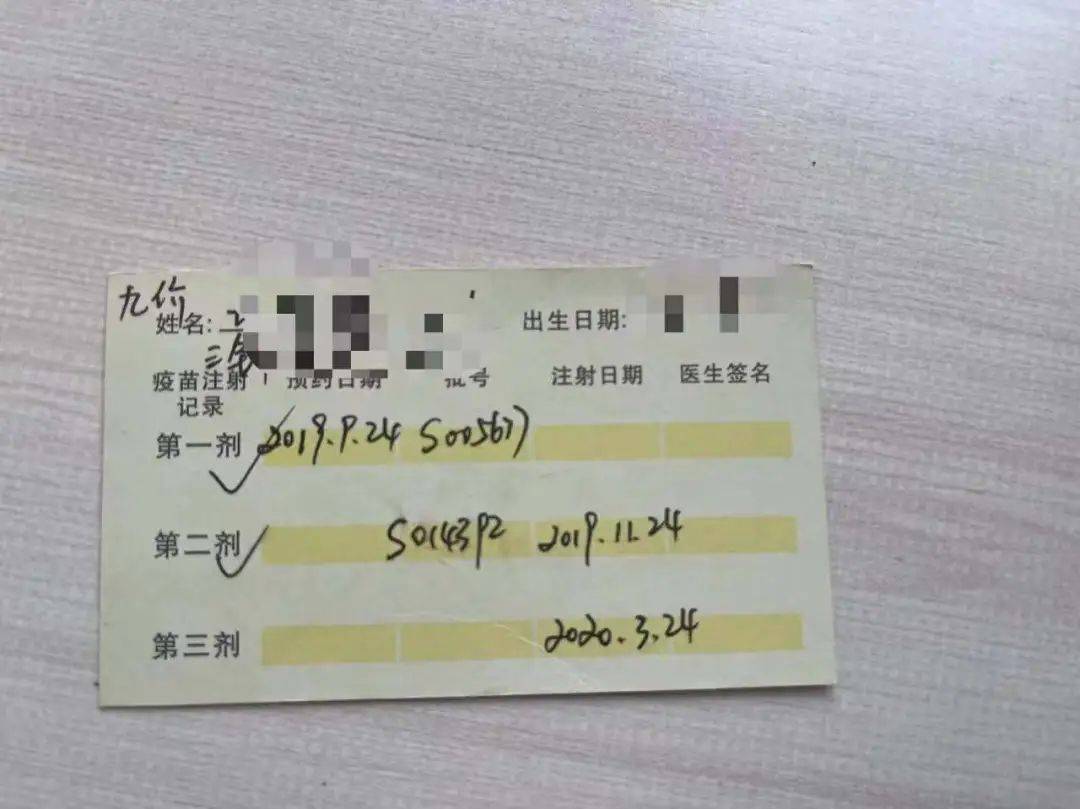 九价
姓名: 出生日期:
疫苗注射记录 预约日期 批号 注射日期 医生签名
第一剂 2019.9.24 S005677
第二剂 S014392 2019.11.24
第三剂 2020.3.24